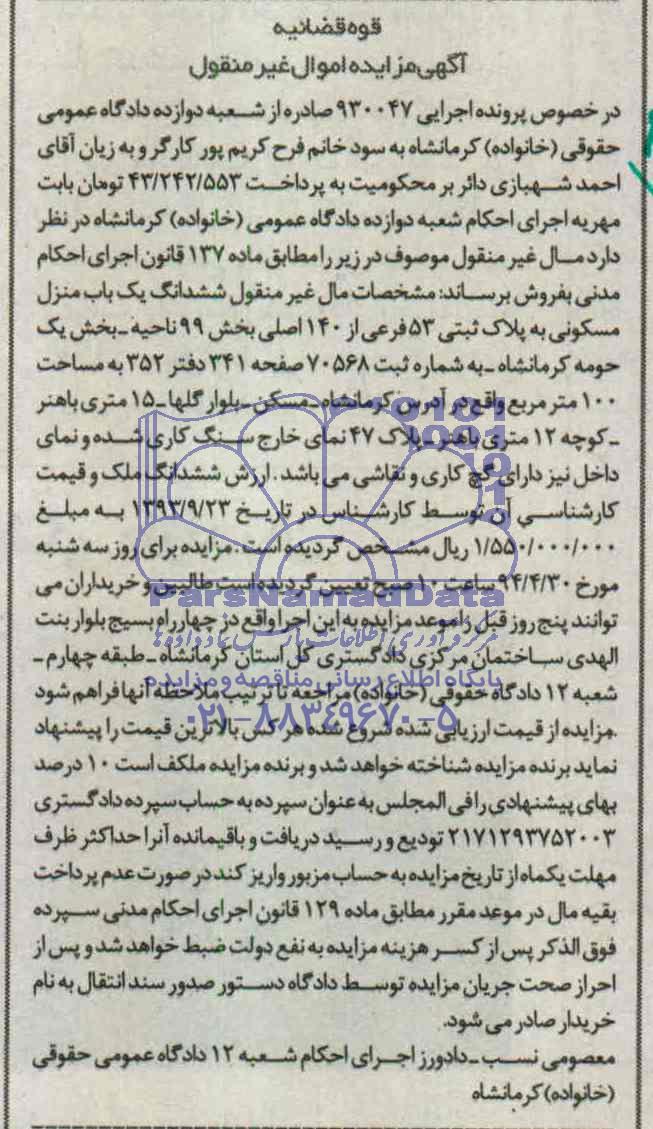 قوه قضائیه
آگهی مزایده اموال غیر منقول
در خصوص پرونده اجرایی ۹۳۰۰۴۷ صادره از شعبه دوازده دادگاه عمومی
حقوقی (خانواده) کرمانشاه به سود خانم فرح کریم پور کارگر و به زیان آقای
احمد شهبازی دائر بر محکومیت به پرداخت ۴۳/۲۴۲/۵۵۳ تومان بابت
مهریه اجرای احکام شعبه دوازده دادگاه عمومی (خانواده) کرمانشاه در نظر
دارد مال غیر منقول موصوف در زیر را مطابق ماده ۱۳۷ قانون اجرای احکام
مدنی بفروش برساند: مشخصات مال غیر منقول ششدانگ یک باب منزل
مسکونی به پلاک ثبتی ۵۳ فرعی از ۱۴۰ اصلی بخش ۹۹ ناحیه ـ بخش یک
حومه کرمانشاه ـ به شماره ثبت ۷۰۵۶۸ صفحه ۳۴۱ دفتر ۳۵۲ به مساحت
۱۰۰ متر مربع واقع در آدرس کرمانشاه ـ مسکن ـ بلوار گلها ـ ۱۵ متری باهنر
ـ کوچه ۱۲ متری باهنر ـ پلاک ۴۷ نمای خارج سنگ کاری شده و نمای
داخل نیز دارای گچ کاری و نقاشی می باشد. ارزش ششدانگ ملک و قیمت
کارشناسی آن توسط کارشناس در تاریخ ۱۳۹۳/۹/۲۳ به مبلغ
۱/۵۵۰/۰۰۰/۰۰۰ ریال مشخص گردیده است. مزایده برای روز سه شنبه
مورخ ۹۴/۴/۳۰ ساعت ۱۰ صبح تعیین گردیده است طالبین و خریداران می
ParsNamadData
توانند پنج روز قبل از موعد مزایده به این اجرا واقع در چهارراه بسیج بلوار بنت
مرکز فرآوری اطلاعات پارس نماد داده ها
الهدی ساختمان مرکزی دادگستری کل استان کرمانشاه ـ طبقه چهارم ـ
پایگاه اطلاع رسانی مناقصه و مزایده
شعبه ۱۲ دادگاه حقوقی (خانواده) مراجعه تا ترتیب ملاحظه آنها فراهم شود
۰۲۱-۸۸۳۴۹۶۷۰-۵
.مزایده از قیمت ارزیابی شده شروع شده هر کس بالاترین قیمت را پیشنهاد
نماید برنده مزایده شناخته خواهد شد و برنده مزایده ملکف است ۱۰ درصد
بهای پیشنهادی را فی المجلس به عنوان سپرده به حساب سپرده دادگستری
۲۱۷۱۲۹۳۷۵۲۰۰۳ تودیع و رسید دریافت و باقیمانده آنرا حداکثر ظرف
مهلت یکماه از تاریخ مزایده به حساب مزبور واریز کند در صورت عدم پرداخت
بقیه مال در موعد مقرر مطابق ماده ۱۲۹ قانون اجرای احکام مدنی سپرده
فوق الذکر پس از کسر هزینه مزایده به نفع دولت ضبط خواهد شد و پس از
احراز صحت جریان مزایده توسط دادگاه دستور صدور سند انتقال به نام
خریدار صادر می شود.
معصومی نسب ـ دادورز اجرای احکام شعبه ۱۲ دادگاه عمومی حقوقی
(خانواده) کرمانشاه